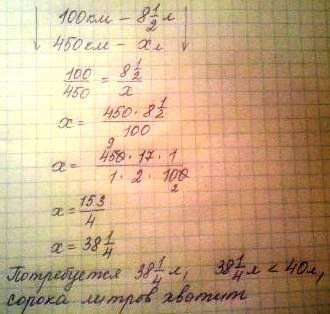 100км – 8 1/2 л
450км – x л
100/450 = 8 1/2 / x
x = 450 · 8 1/2 / 100
x = 9 450 · 17 · 1 / 1 · 2 · 100 2
x = 153/4
x = 38 1/4
Потребуется 38 1/4 л, 38 1/4 л < 40л,
сорока литров хватит